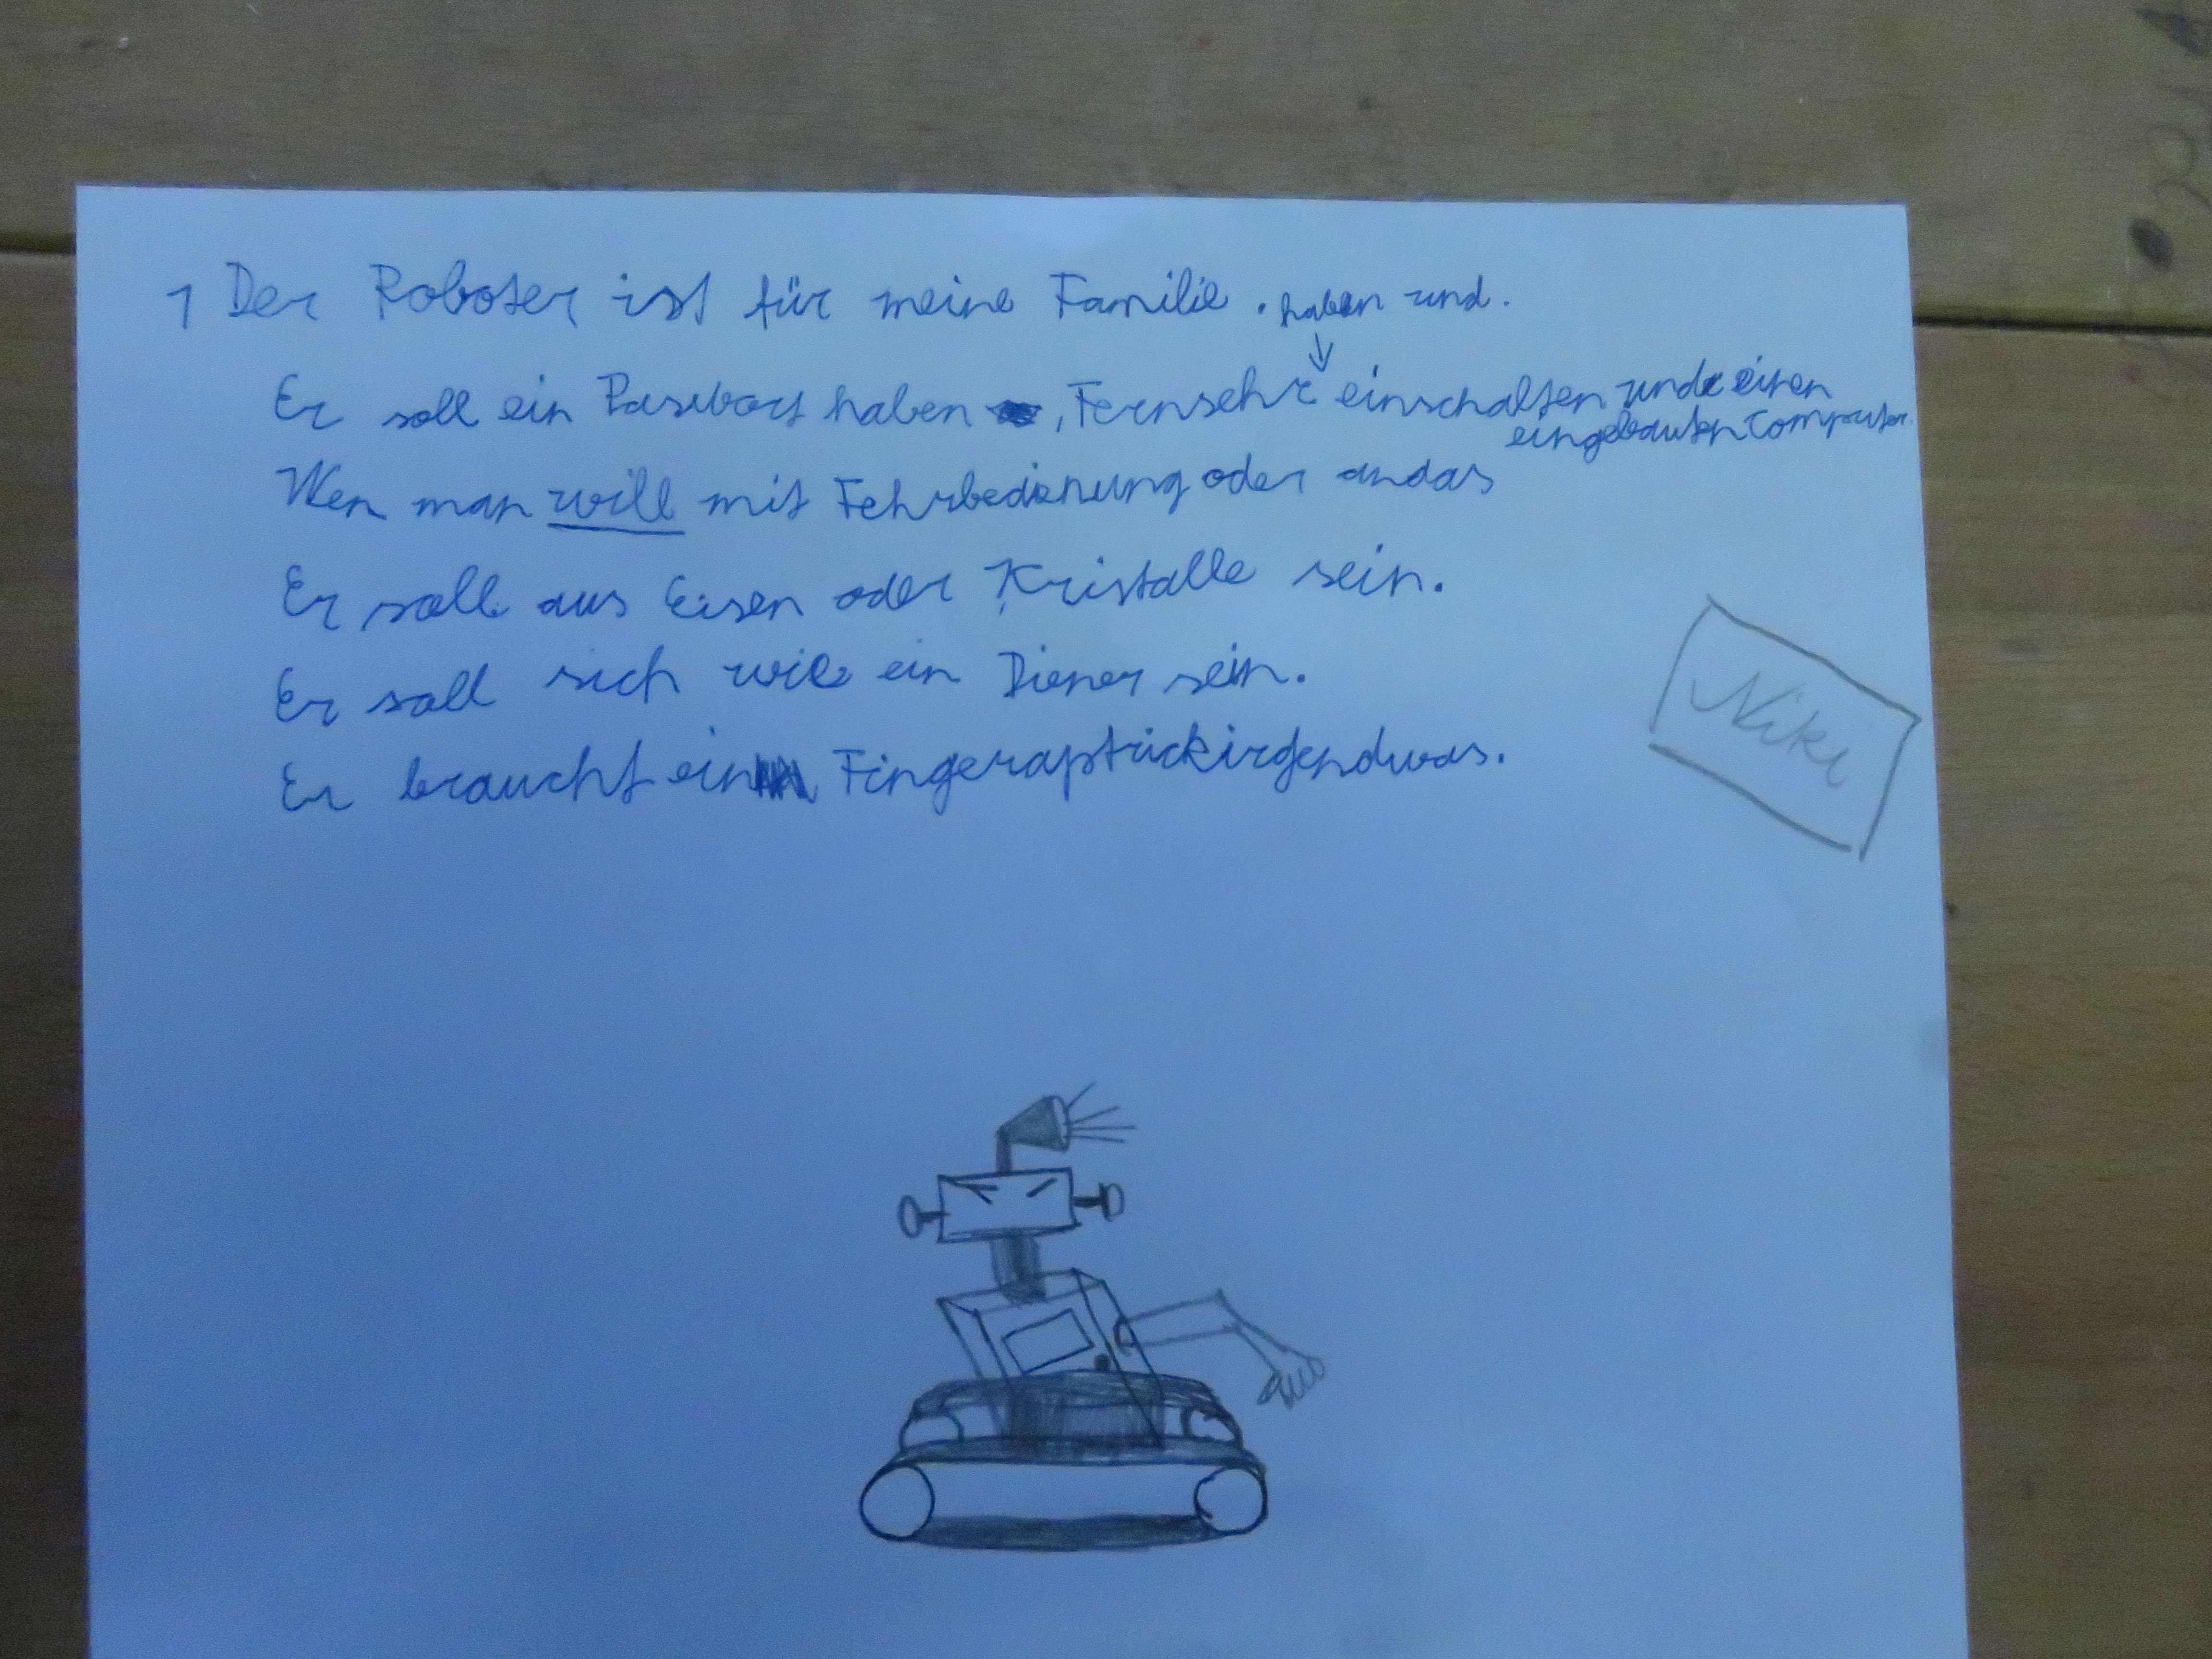 1 Der Roboter ist für meine Familie. haben und.
Er soll ein Passwort haben, Fernsehr einschalten und einen
eingebauten Computer
Wen man will mit Fehrbedienung oder andas
Er soll aus Eisen oder Kristalle sein.
Er soll sich wie ein Diener sein.
Er braucht ein Fingeraptrückirgendwas.
Niki